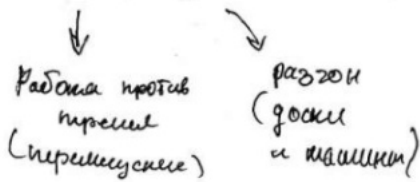 Работа против
трения
(перемещение)
разгон
(доски
и машины)